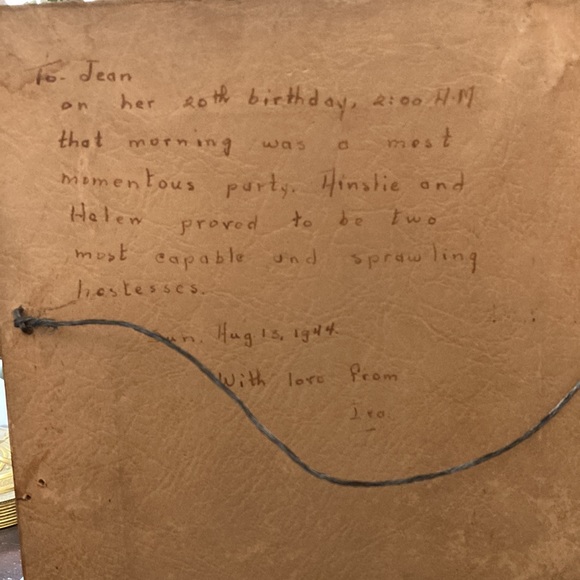 To- Jean
on her 20th birthday, 2:00 A.M
that morning was a most
momentous party. Ainslie and
Helen proved to be two
most capable and sprawling
hostesses.
Sun. Aug 13, 1944.
With love from